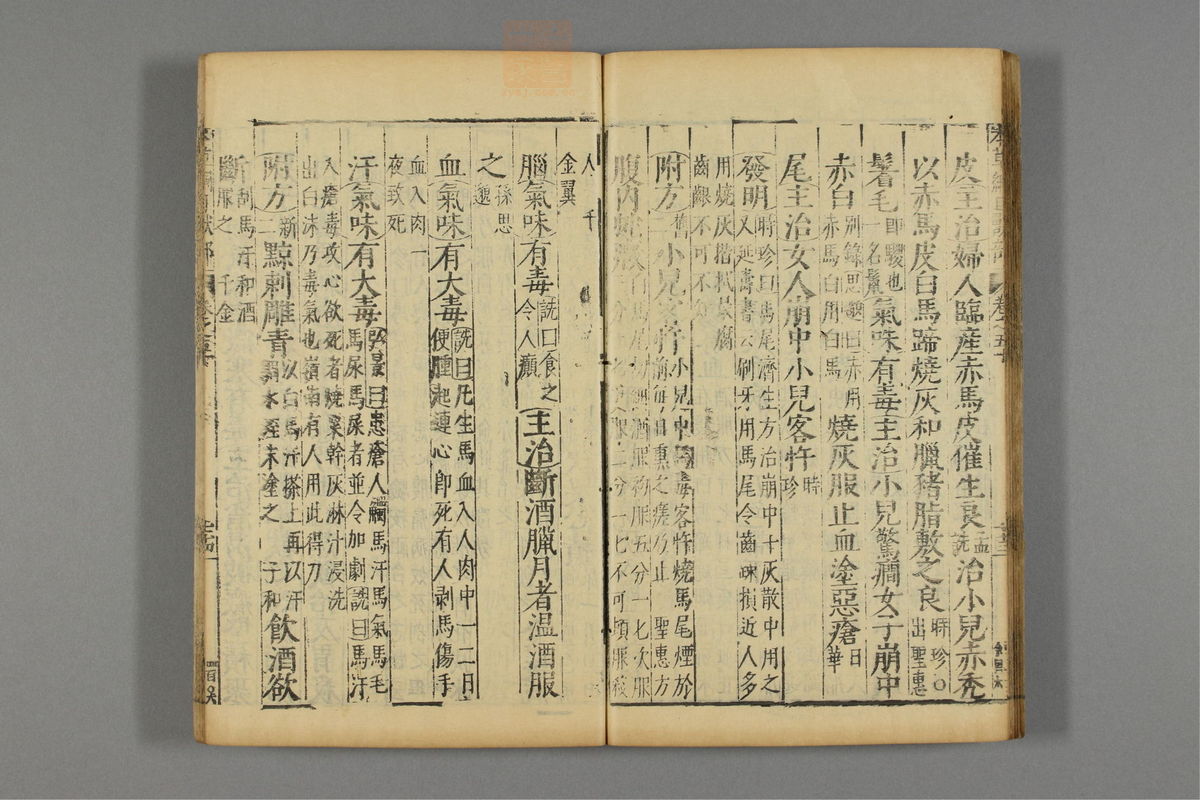 皮主治婦人臨産赤馬皮催生良孟詵治小兒赤禿
以赤馬皮白馬蹄燒灰和臘猪脂敷之良時珍○出聖惠
鬐毛卽騣也一名鬣氣味有毒主治小兒驚癇女子崩中
赤白別錄思邈曰赤用赤馬白用白馬燒灰服止血塗惡瘡日華
尾主治女人崩中小兒客忤時珍
發明時珍曰馬尾濟生方治崩中十灰散中用之又延壽書云刷牙用馬尾令齒疎損近人多
用燒灰揩拭最腐齒齦不可不
附方舊小兒客忤小兒中馬毒客忤燒馬尾煙於前每日熏之瘥乃止聖惠方
腹内
人千
金翼
腦氣味有毒詵曰食之令人癲主治斷酒臘月者溫酒服
之孫思邈
血氣味有大毒詵曰凡生馬血入人肉中一二日便腫起連心卽死有人剥馬傷手
血入肉一夜致死
汗氣味有大毒弘景曰患瘡人觸馬汗馬氣馬毛馬尿馬屎者並令加劇詵曰馬汗
入瘡毒攻心欲死者燒粟幹灰淋汁浸洗出白沫乃毒氣也嶺南有人用此得力
附方新二黥刺雕青以白馬汗搽上再以汗調水蛭末塗之子和飲酒欲
斷刮馬汗和酒服之千金